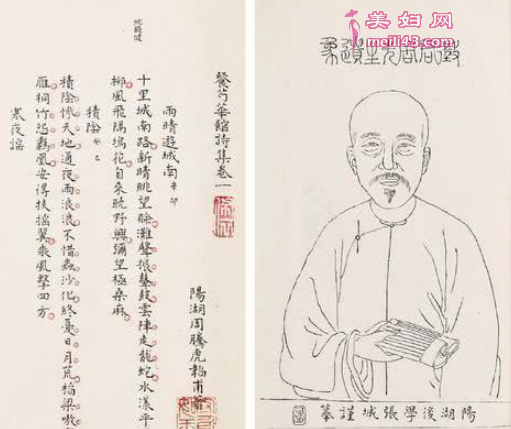 美妇网
meili43.com
陽湖後學張城謹摹
餐芍華館詩集卷一
陽湖周騰虎韜甫
雨晴遊城南 辛卯
十里城南路新晴眺望賒灘聲振鼙鼓雲陣走龍蛇水漾平
柳風飛隔塢花自來耽野興彌望極桑麻
積陰 癸巳
積陰慘天地通夜雨浪浪不惜蟲沙化終憂日月荒稻粱嗷
雁桐竹怨鸞凰安得扶搖翼乘風擊四方
寒夜謠